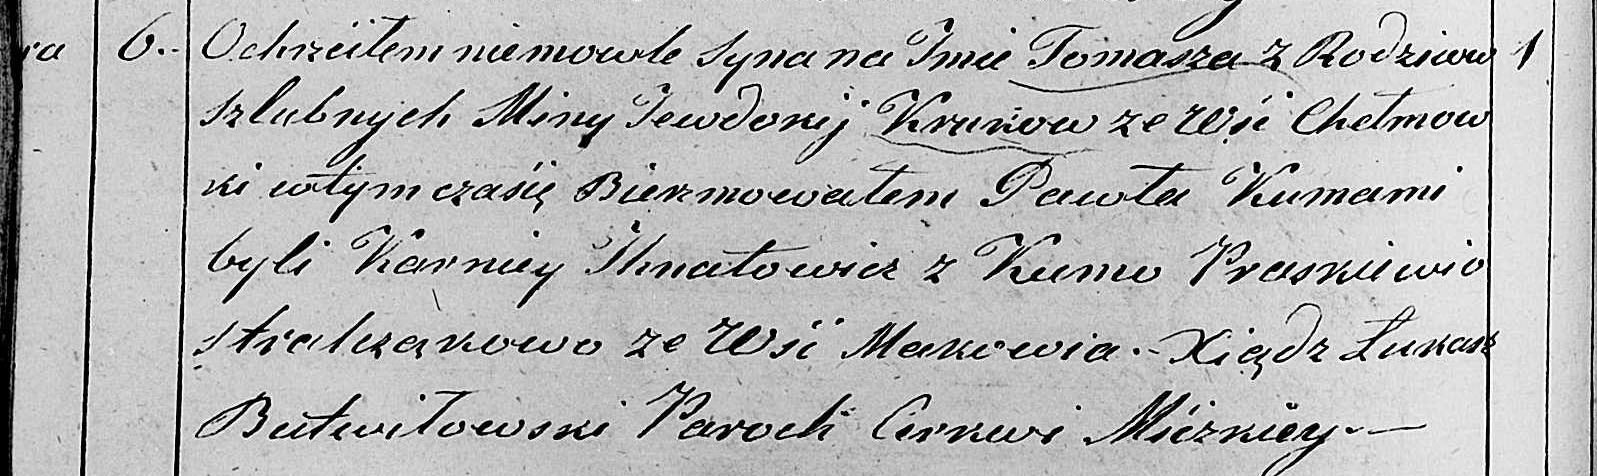 ra 6.- Ochrzcilem niemowle Syna na Jmie Tomasza z Rodzicow 1
szlubnych Miny Jewdokij Krukow ze Wsi Chełmow
ki wtym czasię Bierzmowałem Pawła Kumami
byli Karniey Jhnatowicz z Kumo Praskiewio
strałczakowo ze Wsi Makowia.- Xiądz Łukasz
Butwiłowski Paroch Cerkwi Miczkiey.-